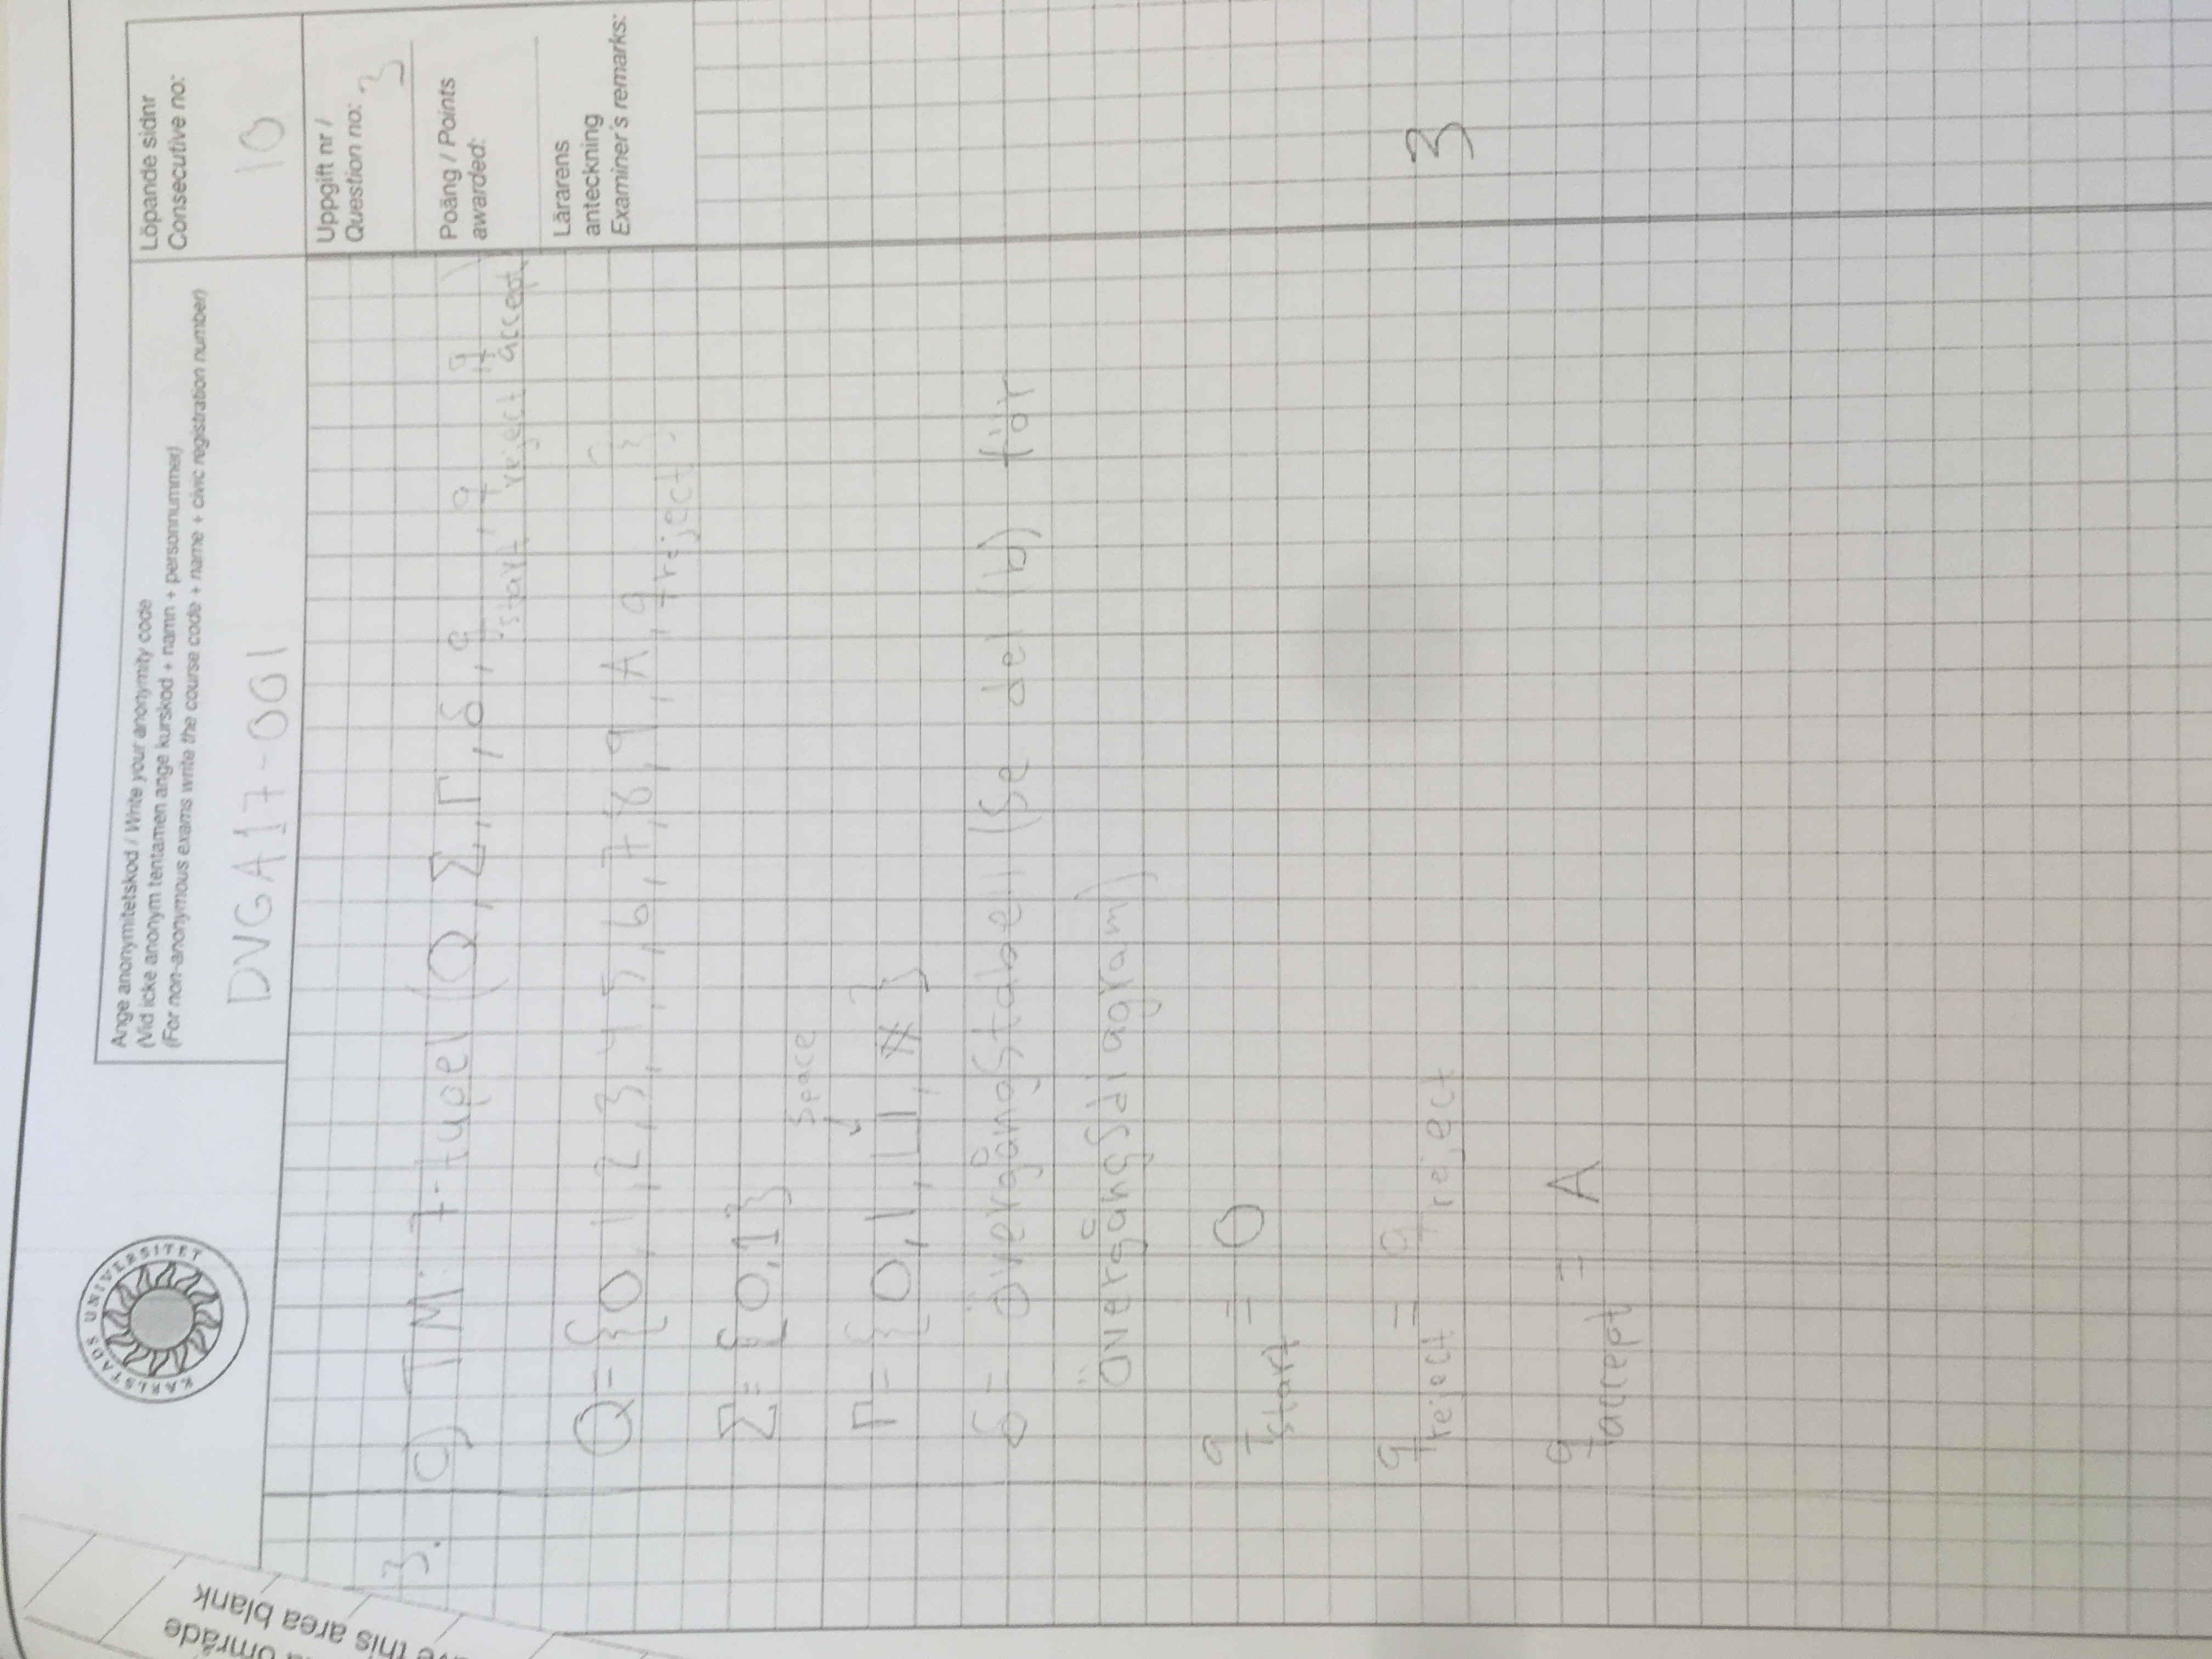 område
ve this area blank
KARLSTADS UNIVERSITET
Ange anonymitetskod / Write your anonymity code
(Vid icke anonym tentamen ange kurskod + namn + personnummer)
(For non-anonymous exams write the course code + name + civic registration number)
DVGA17-001
Löpande sidnr
Consecutive no:
10
Uppgift nr /
Question no: 3
Poäng / Points
awarded:
Lärarens
anteckning
Examiner's remarks:
3. c) TM: 7-tupel (Q, Σ, Γ, δ, q start, q reject, q accept)
Q = {0, 1, 2, 3, 4, 5, 6, 7, 8, 9, A, q reject}
Σ = {0, 1}
Space
Γ = {0, 1, ⊔, #}
δ = övergångstabell (se del (b) för
övergångsdiagram)
q start = 0
q reject = q reject
3
q accept = A